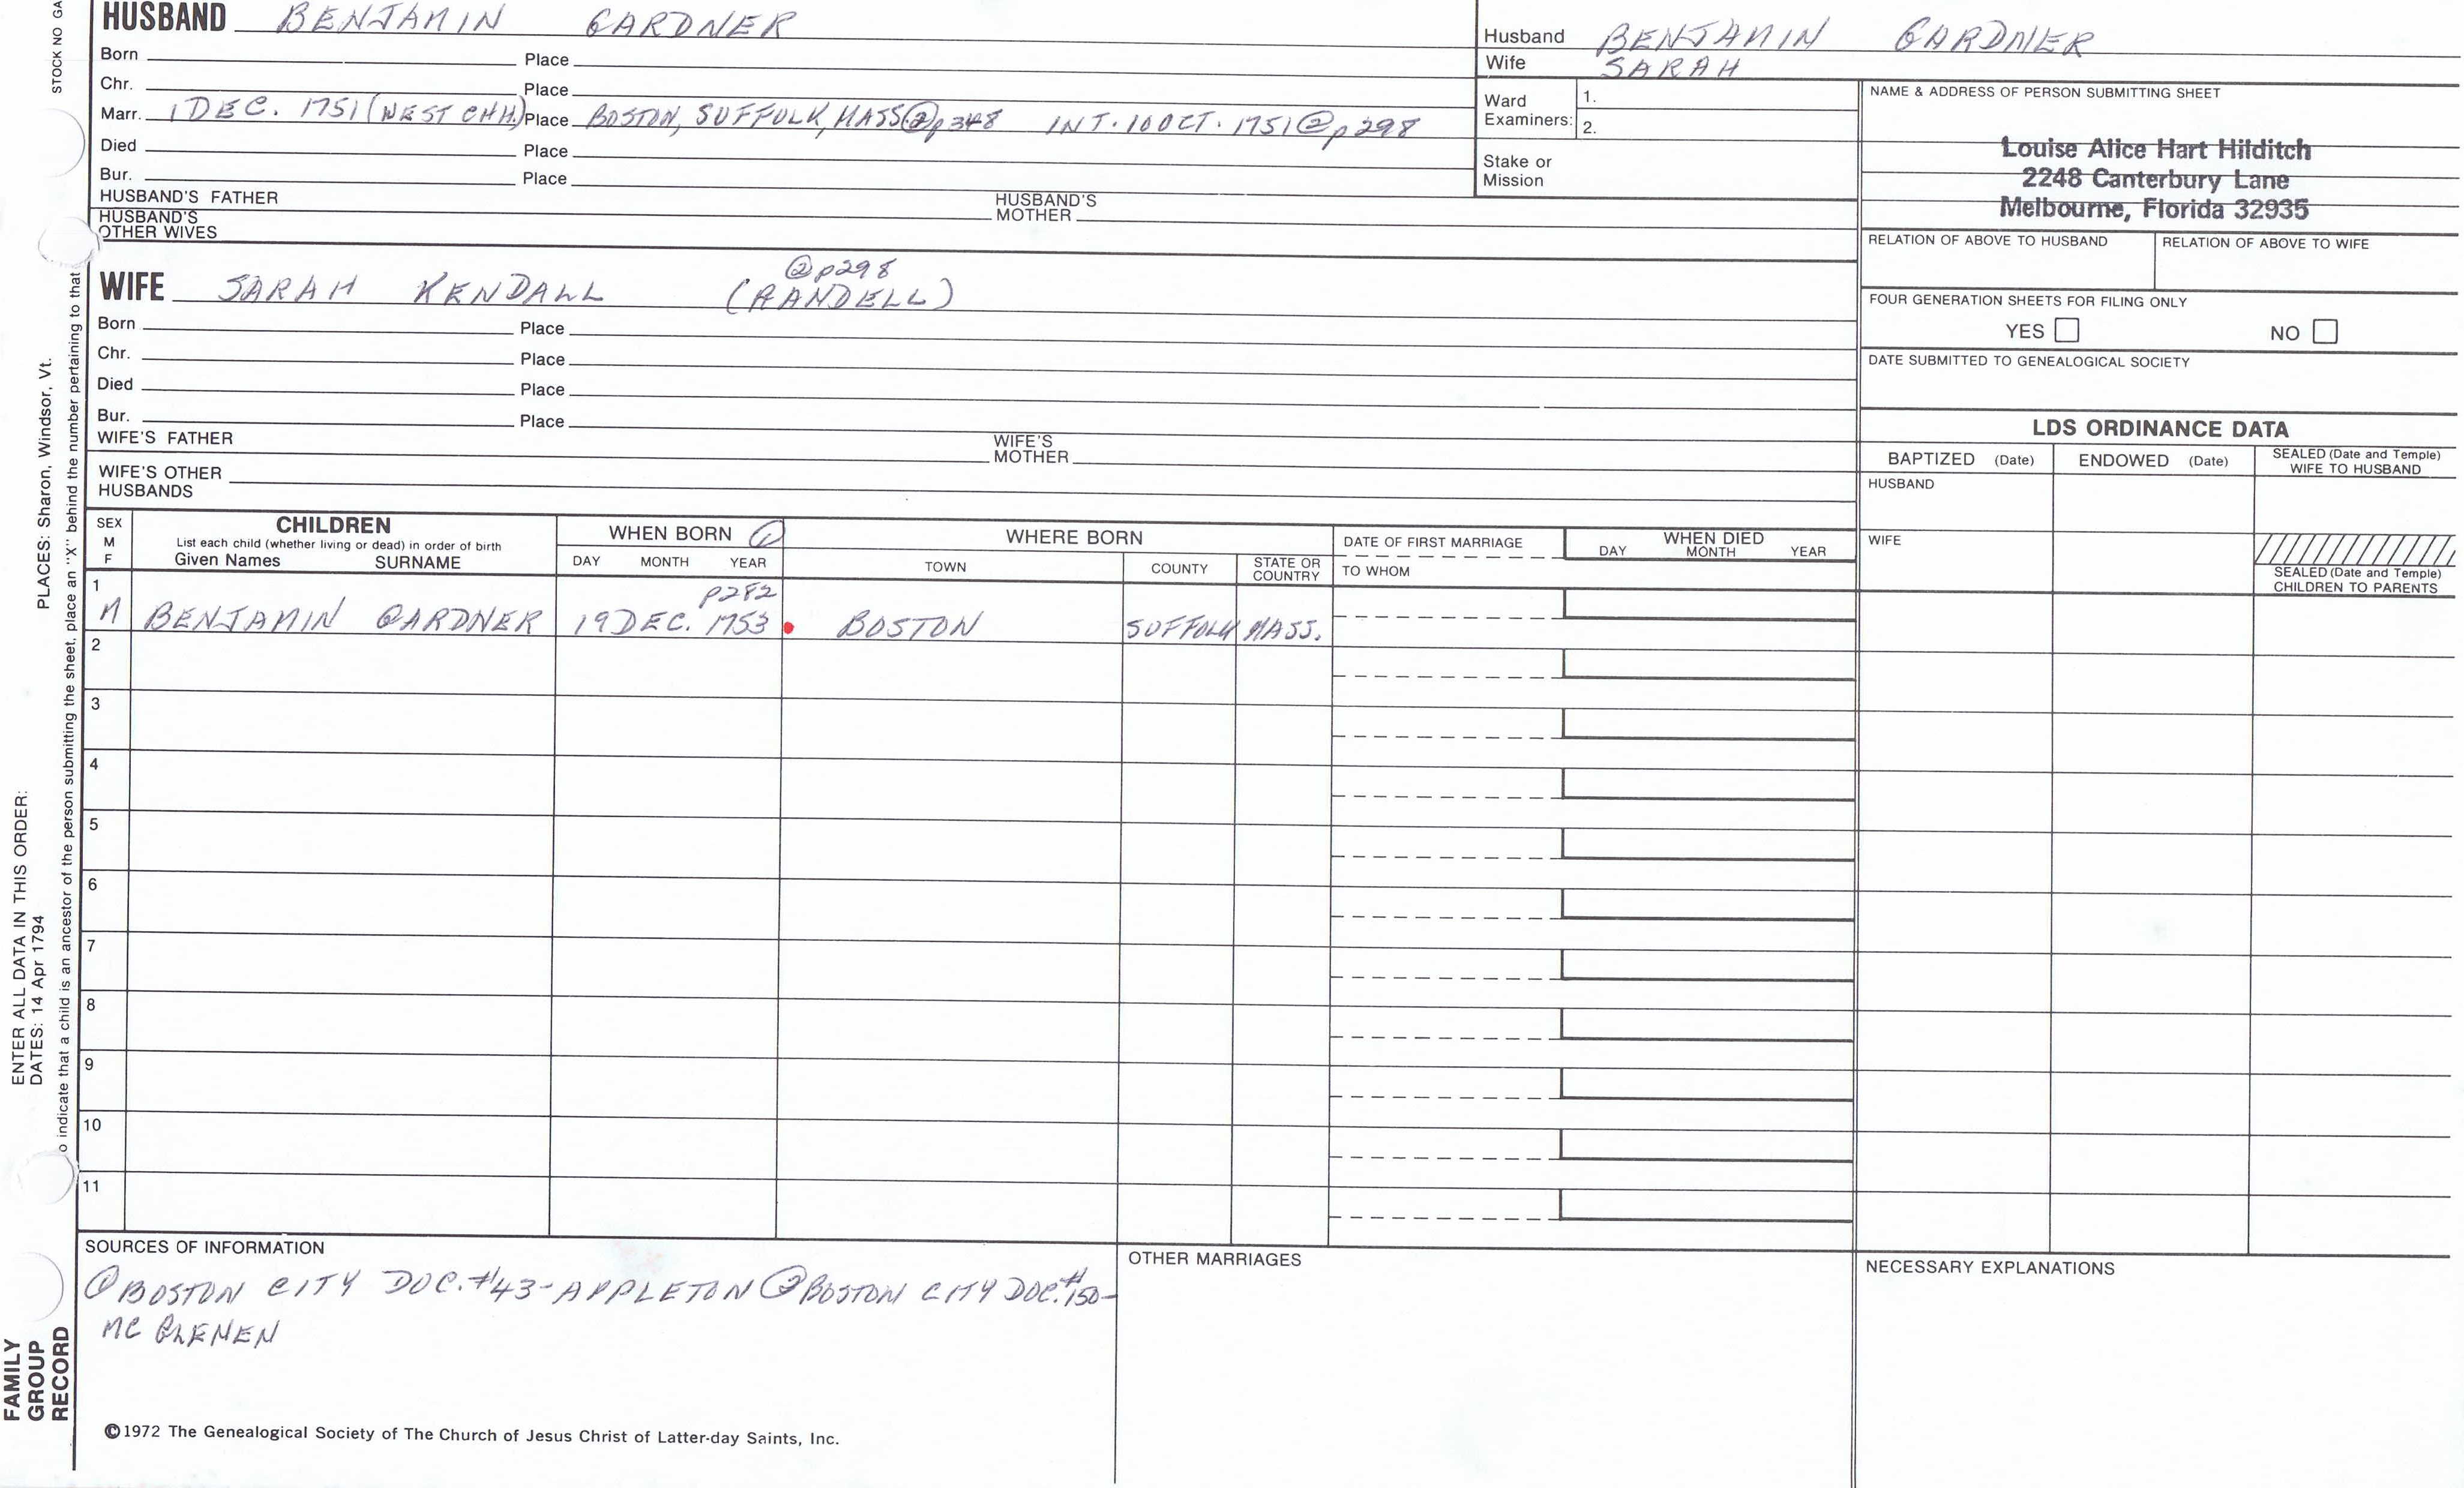 STOCK NO GA
HUSBAND BENJAMIN GARDNER
Born Place
Chr. Place
Marr. 1 DEC. 1751 (WEST CHH.) Place BOSTON, SUFFOLK, MASS ② p348 INT. 10 OCT. 1751 ② p298
Died Place
Bur. Place
HUSBAND'S FATHER HUSBAND'S MOTHER
HUSBAND'S
OTHER WIVES
Husband BENJAMIN GARDNER
Wife SARAH
Ward
Examiners:
1.
2.
Stake or
Mission
NAME & ADDRESS OF PERSON SUBMITTING SHEET
Louise Alice Hart Hilditch
2248 Canterbury Lane
Melbourne, Florida 32935
RELATION OF ABOVE TO HUSBAND RELATION OF ABOVE TO WIFE
FOUR GENERATION SHEETS FOR FILING ONLY
YES NO
DATE SUBMITTED TO GENEALOGICAL SOCIETY
② p298
WIFE SARAH KENDALL (RANDELL)
Born Place
Chr. Place
Died Place
Bur. Place
WIFE'S FATHER WIFE'S MOTHER
WIFE'S OTHER
HUSBANDS
LDS ORDINANCE DATA
BAPTIZED (Date) ENDOWED (Date) SEALED (Date and Temple) WIFE TO HUSBAND
HUSBAND
WIFE
SEALED (Date and Temple)
CHILDREN TO PARENTS
SEX
M
F
CHILDREN
List each child (whether living or dead) in order of birth
Given Names SURNAME
WHEN BORN ①
DAY MONTH YEAR
WHERE BORN
TOWN COUNTY STATE OR COUNTRY
DATE OF FIRST MARRIAGE
TO WHOM
WHEN DIED
DAY MONTH YEAR
1 p282
M BENJAMIN GARDNER 19 DEC. 1753 BOSTON SUFFOLK MASS.
2
3
4
5
6
7
8
9
10
11
SOURCES OF INFORMATION
① BOSTON CITY DOC. #43 - APPLETON ② BOSTON CITY DOC. #150 -
MC GLENEN
OTHER MARRIAGES
NECESSARY EXPLANATIONS
©1972 The Genealogical Society of The Church of Jesus Christ of Latter-day Saints, Inc.
FAMILY
GROUP
RECORD
ENTER ALL DATA IN THIS ORDER:
DATES: 14 Apr 1794 PLACES: Sharon, Windsor, Vt.
o indicate that a child is an ancestor of the person submitting the sheet, place an "X" behind the number pertaining to that